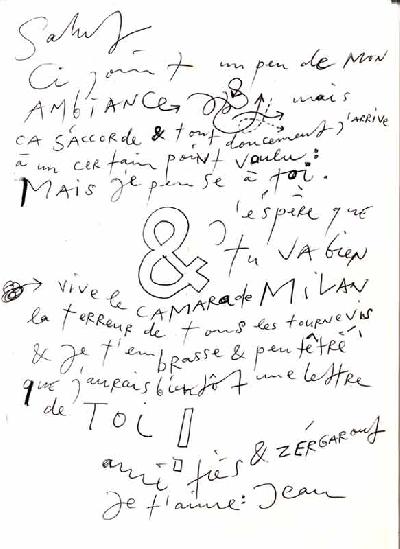 Salut
Ci joint un peu de MON
AMBIANCE → & mais
ÇA S'ACCORDE & tout doucement j'ARRIVE
à un certain point voulu :
MAIS je pense à toi.
j'éspère que
& tu VA bien
→ VIVE le CAMARADe MILAN
la terreur de tous les TOURNEVIS
& je t'embrasse & peut êtrê
que j'aurais bientôt une lettre
de TOI
ami tiés &
je t'aime : Jean